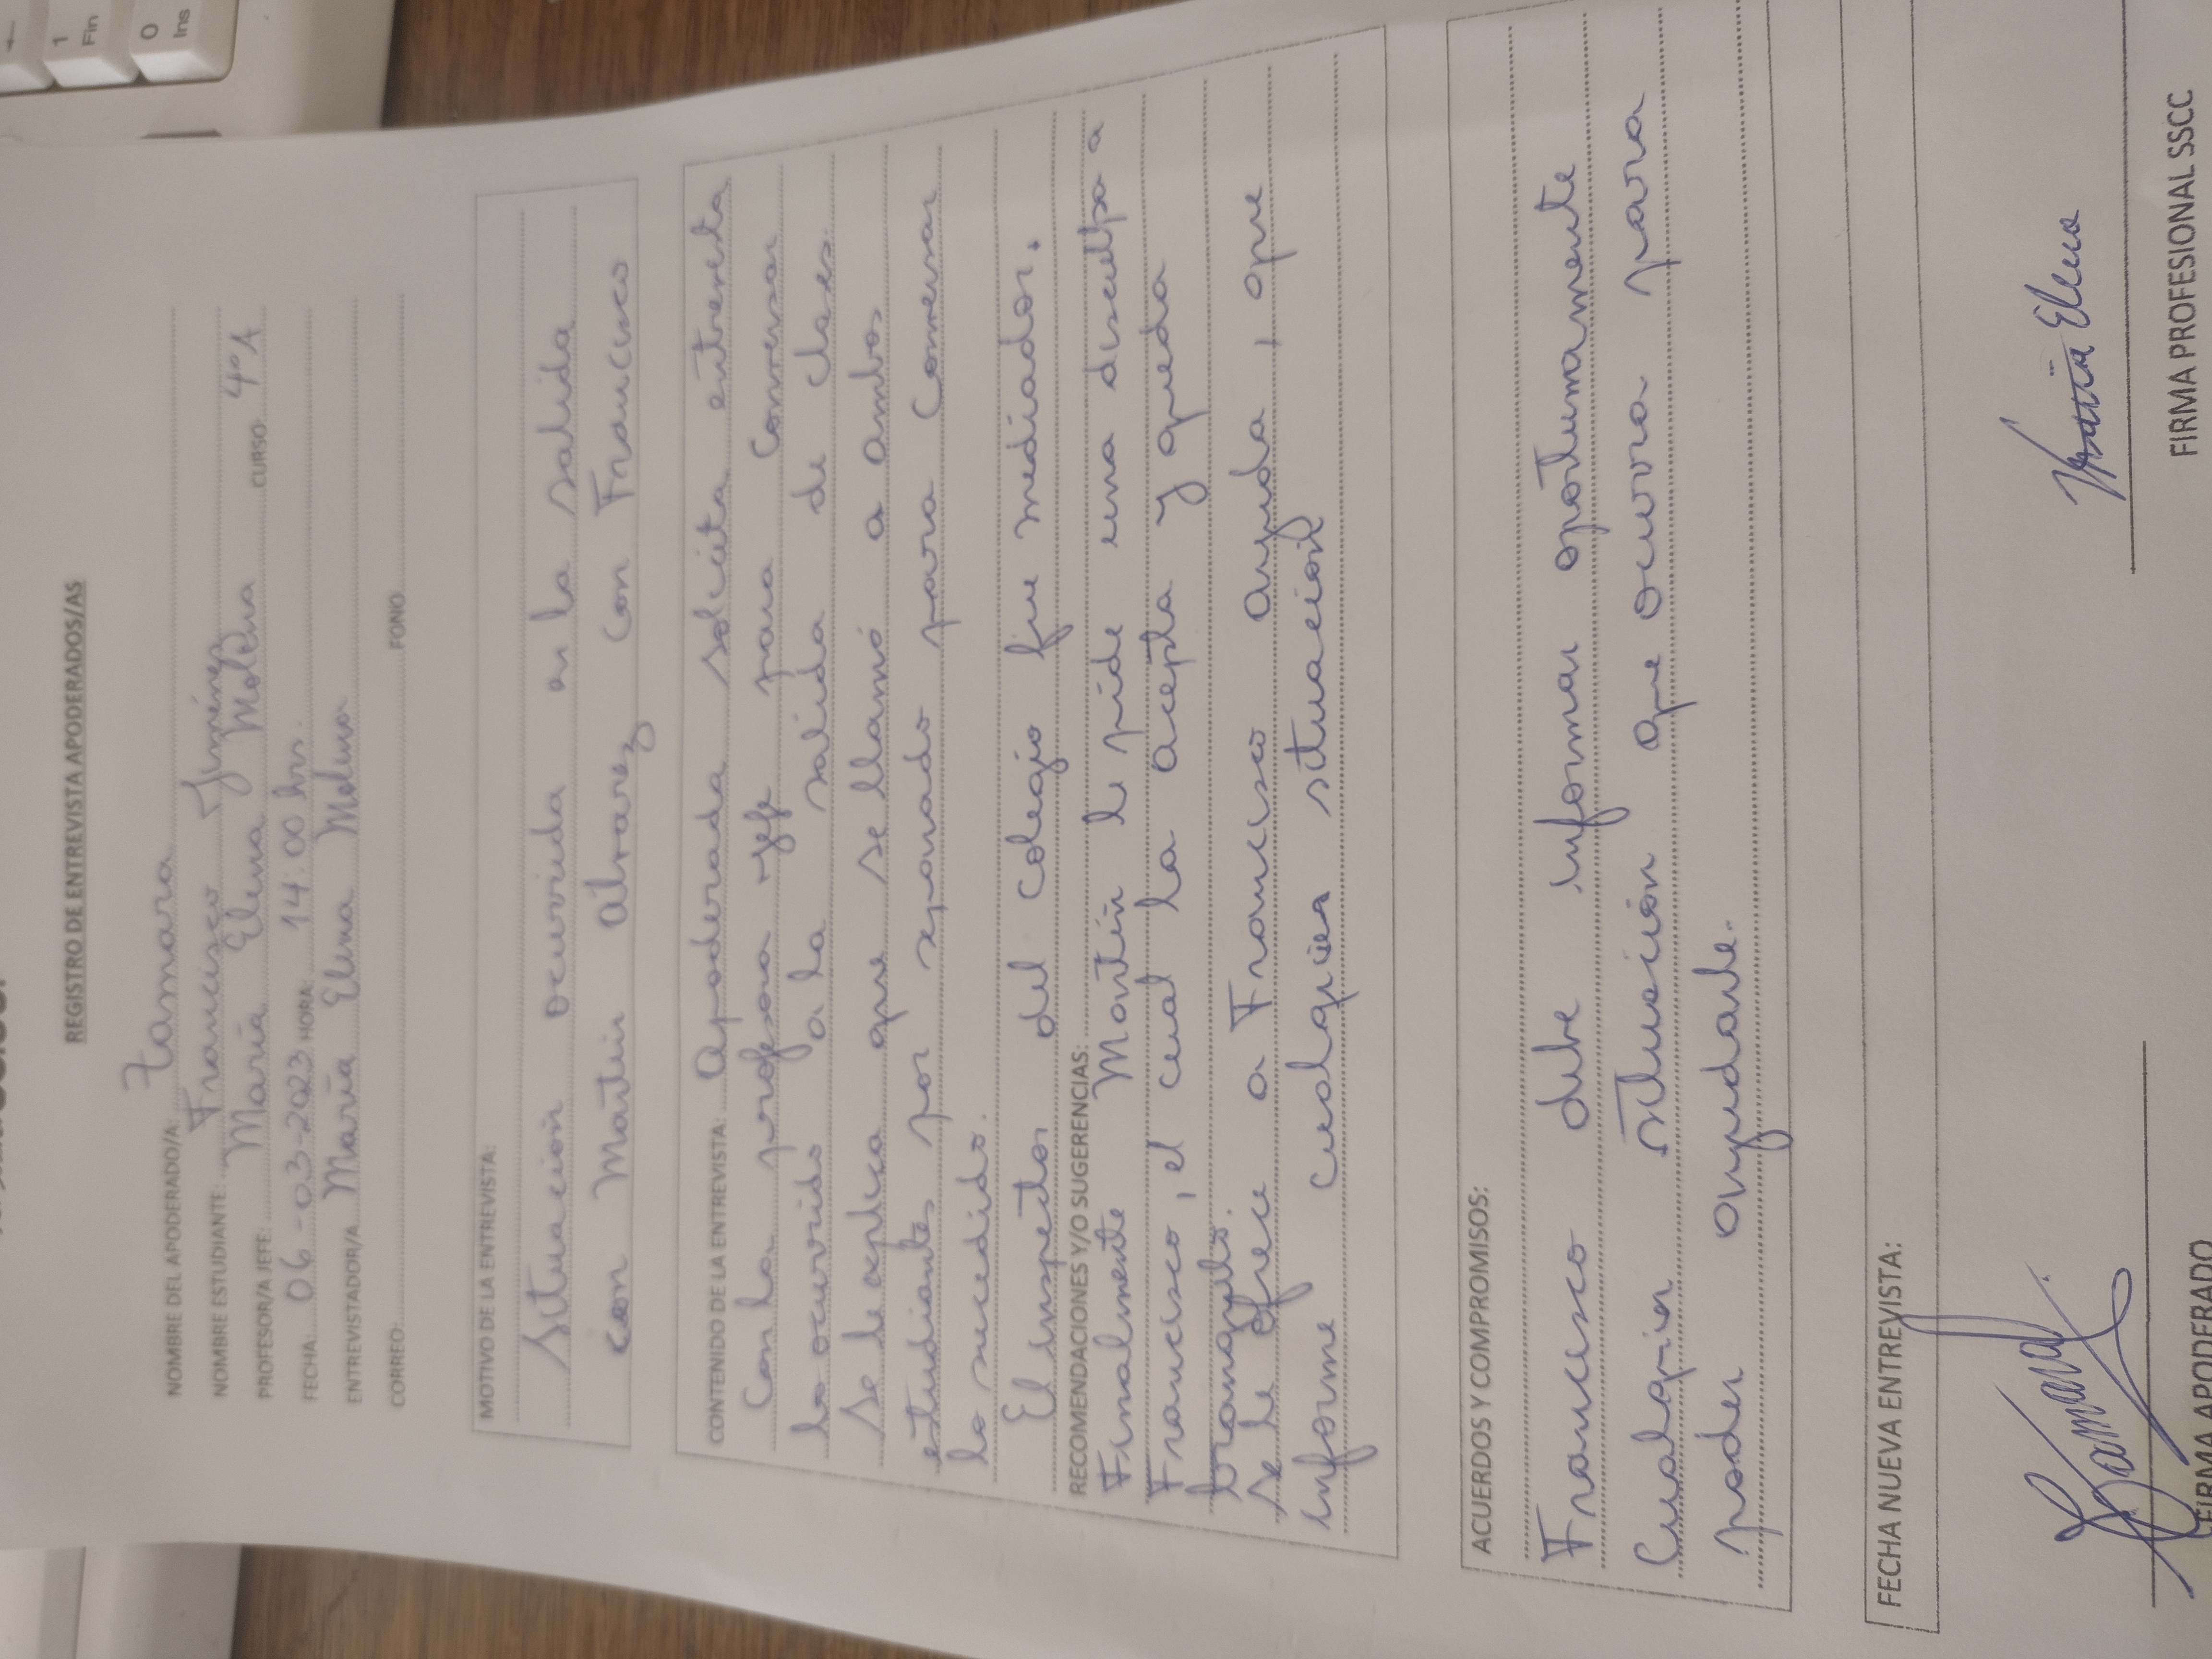 REGISTRO DE ENTREVISTA APODERADOS/AS
NOMBRE DEL APODERADO/A: Tamara
NOMBRE ESTUDIANTE: Francisco Jiménez
PROFESOR/A JEFE: María Elena Molina CURSO: 4°A
FECHA: 06-03-2023 HORA: 14:00 hrs.
ENTREVISTADOR/A María Elena Molina
CORREO: FONO:
MOTIVO DE LA ENTREVISTA:
Situación ocurrida en la salida
con Martín Alvarez con Francisco
CONTENIDO DE LA ENTREVISTA: Apoderada solicita entrevista
con la profesora jefe para conversar
lo ocurrido a la salida de clases.
Se le explica que se llamó a ambos
estudiantes por separado para conversar
lo sucedido.
El inspector del colegio fue mediador.
RECOMENDACIONES Y/O SUGERENCIAS:
Finalmente Martín le pide una disculpa a
Francisco, el cual la acepta y queda
tranquilo.
Se le ofrece a Francisco ayuda, que
informe cualquier situación
ACUERDOS Y COMPROMISOS:
Francisco debe informar oportunamente
Cualquier situación que ocurra para
poder ayudarle.
FECHA NUEVA ENTREVISTA:
Tamara María Elena
FIRMA APODERADO FIRMA PROFESIONAL SSCC